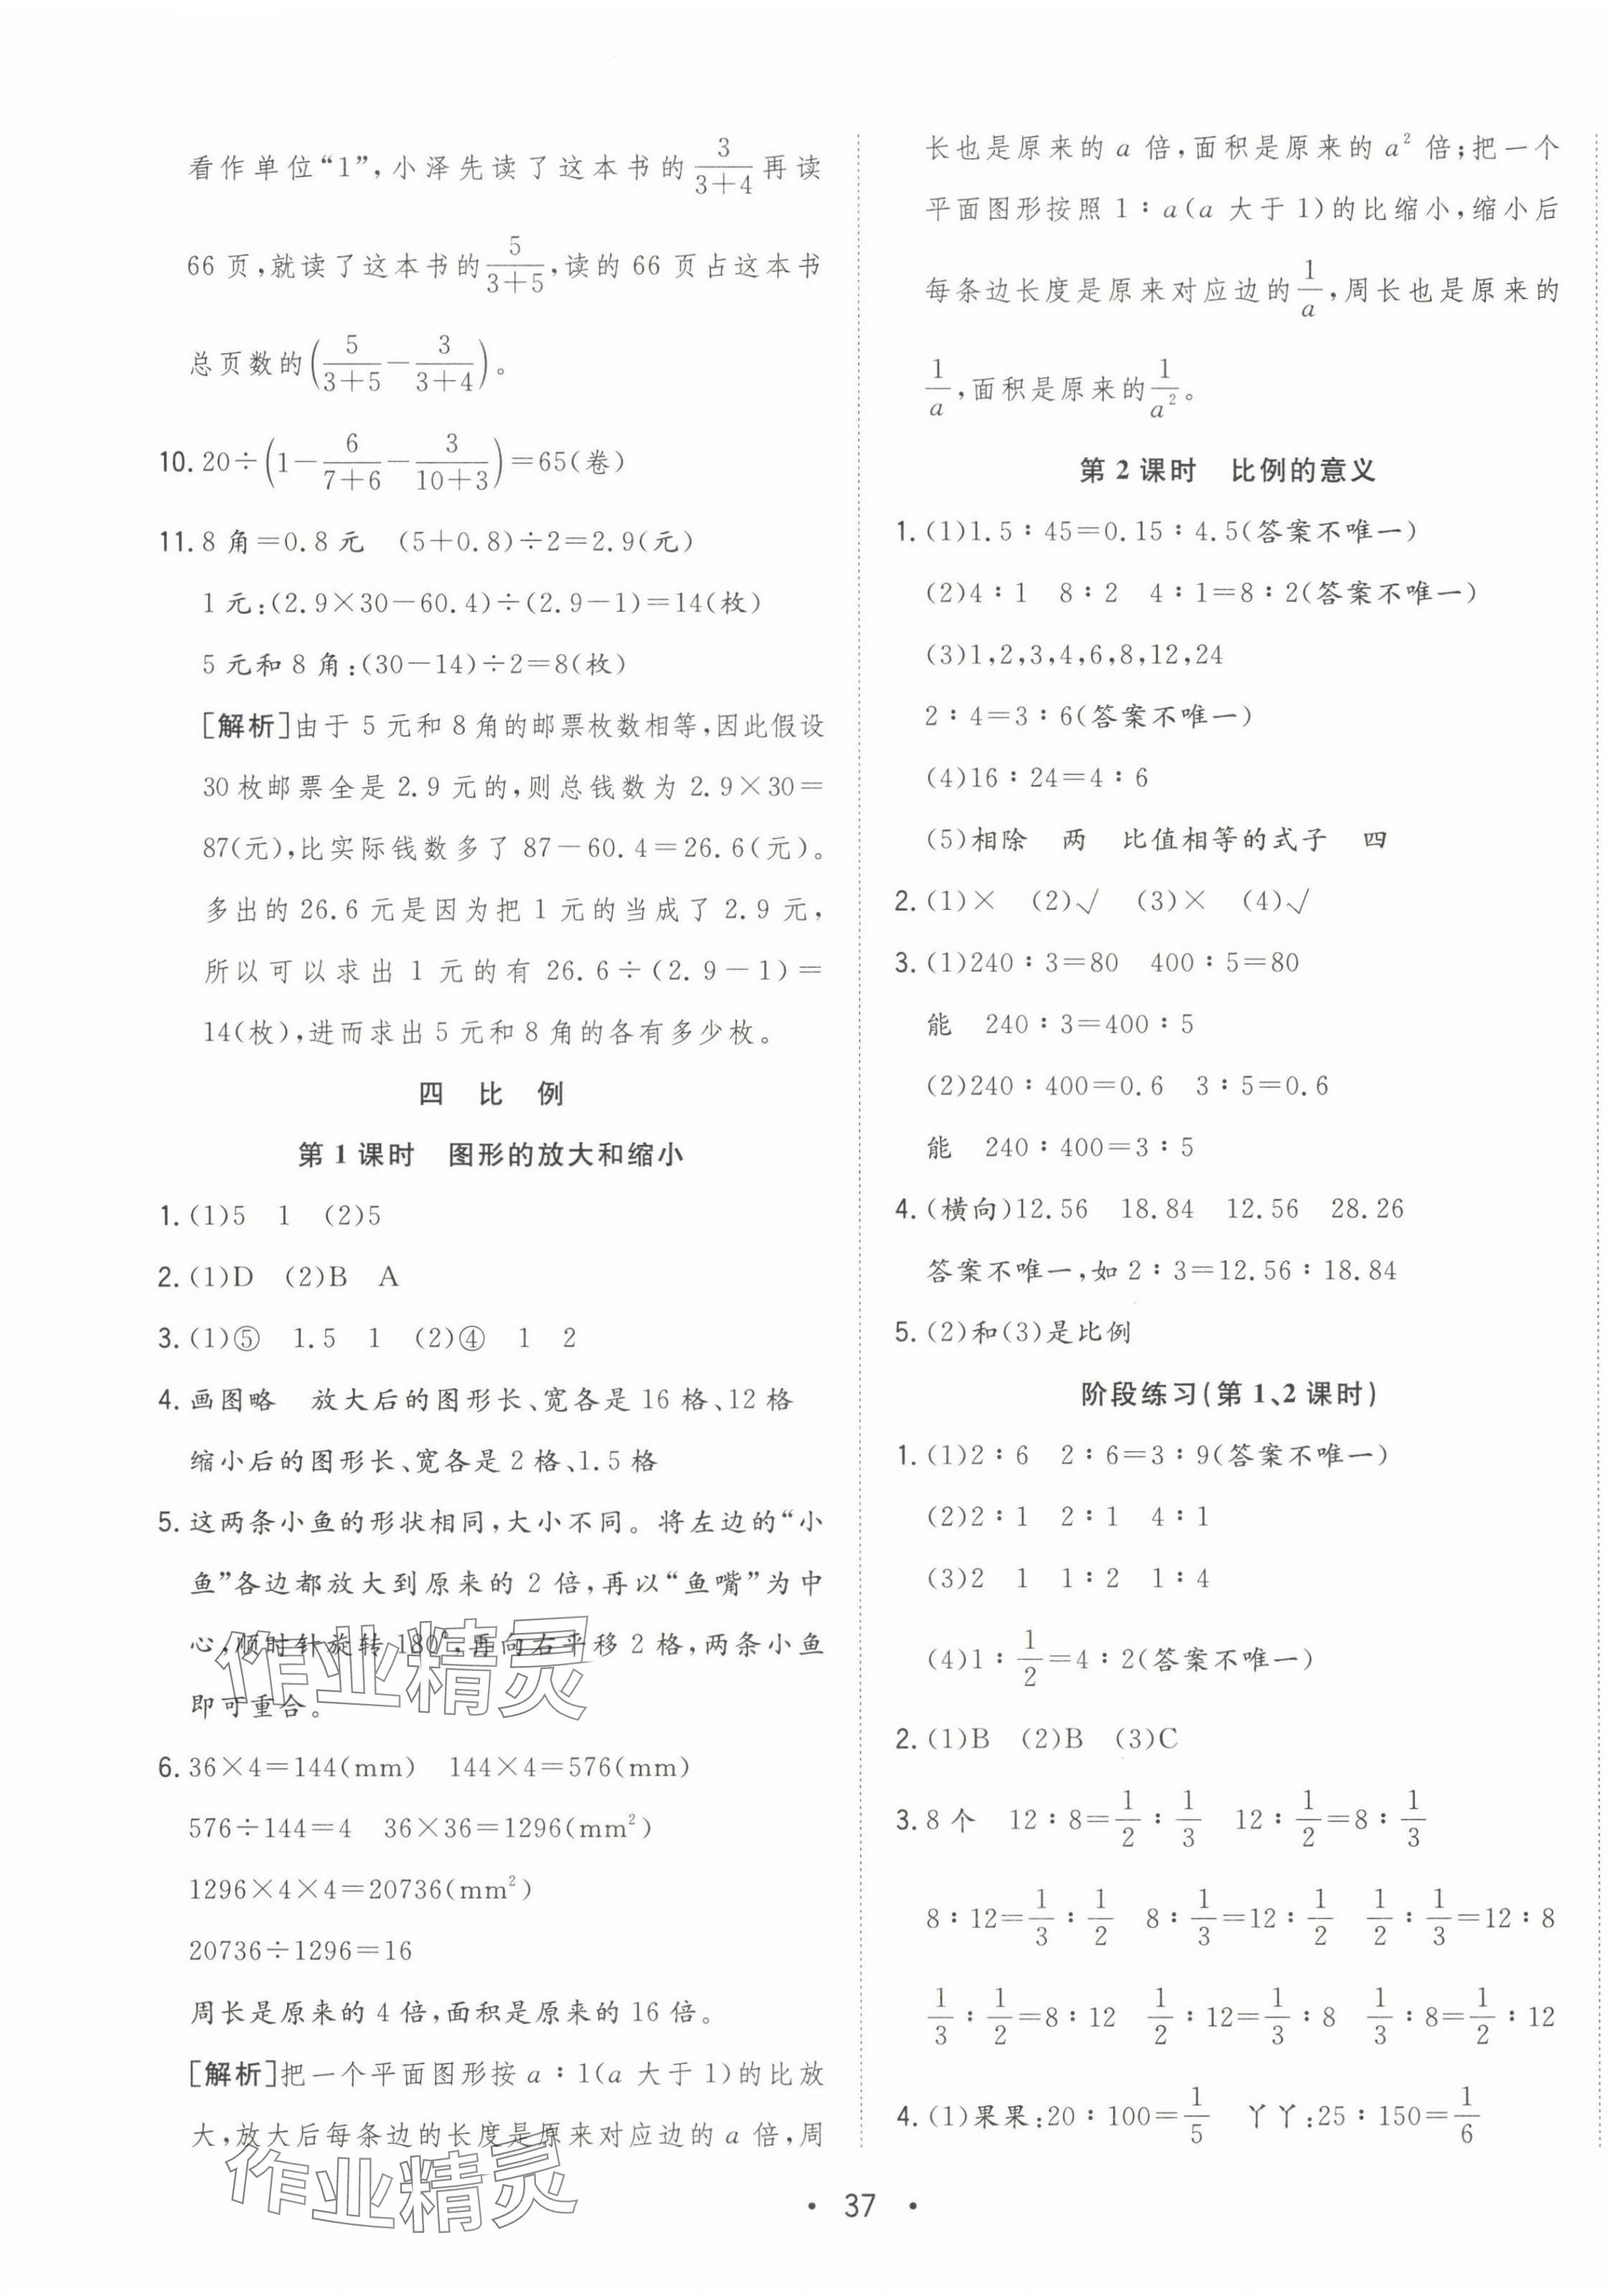 看作单位“1”,小泽先读了这本书的3/(3+4)再读
66页,就读了这本书的5/(3+5),读的66页占这本书
总页数的(5/(3+5)-3/(3+4))。
10.20÷(1-6/(7+6)-3/(10+3))=65(卷)
11.8角=0.8元 (5+0.8)÷2=2.9(元)
1元:(2.9×30-60.4)÷(2.9-1)=14(枚)
5元和8角:(30-14)÷2=8(枚)
[解析]由于5元和8角的邮票枚数相等,因此假设
30枚邮票全是2.9元的,则总钱数为2.9×30=
87(元),比实际钱数多了87-60.4=26.6(元)。
多出的26.6元是因为把1元的当成了2.9元,
所以可以求出1元的有26.6÷(2.9-1)=
14(枚),进而求出5元和8角的各有多少枚。
四 比 例
第1课时 图形的放大和缩小
1.(1)5 1 (2)5
2.(1)D (2)B A
3.(1)⑤ 1.5 1 (2)④ 1 2
4.画图略 放大后的图形长、宽各是16格、12格
缩小后的图形长、宽各是2格、1.5格
5.这两条小鱼的形状相同,大小不同。将左边的“小
鱼”各边都放大到原来的2倍,再以“鱼嘴”为中
心,顺时针旋转180°,再向右平移2格,两条小鱼
即可重合。
6.36×4=144(mm) 144×4=576(mm)
576÷144=4 36×36=1296(mm²)
1296×4×4=20736(mm²)
20736÷1296=16
周长是原来的4倍,面积是原来的16倍。
[解析]把一个平面图形按a∶1(a大于1)的比放
大,放大后每条边的长度是原来对应边的a倍,周
长也是原来的a倍,面积是原来的a²倍;把一个
平面图形按照1∶a(a大于1)的比缩小,缩小后
每条边长度是原来对应边的1/a,周长也是原来的
1/a,面积是原来的1/a²。
第2课时 比例的意义
1.(1)1.5∶45=0.15∶4.5(答案不唯一)
(2)4∶1 8∶2 4∶1=8∶2(答案不唯一)
(3)1,2,3,4,6,8,12,24
2∶4=3∶6(答案不唯一)
(4)16∶24=4∶6
(5)相除 两 比值相等的式子 四
2.(1)× (2)√ (3)× (4)√
3.(1)240∶3=80 400∶5=80
能 240∶3=400∶5
(2)240∶400=0.6 3∶5=0.6
能 240∶400=3∶5
4.(横向)12.56 18.84 12.56 28.26
答案不唯一,如2∶3=12.56∶18.84
5.(2)和(3)是比例
阶段练习(第1、2课时)
1.(1)2∶6 2∶6=3∶9(答案不唯一)
(2)2∶1 2∶1 4∶1
(3)2 1 1∶2 1∶4
(4)1∶1/2=4∶2(答案不唯一)
2.(1)B (2)B (3)C
3.8个 12∶8=1/2∶1/3 12∶1/2=8∶1/3
8∶12=1/3∶1/2 8∶1/3=12∶1/2 1/2∶1/3=12∶8
1/3∶1/2=8∶12 1/2∶12=1/3∶8 1/3∶8=1/2∶12
4.(1)果果:20∶100=1/5 丫丫:25∶150=1/6
作业精灵
作业精灵
• 37 •